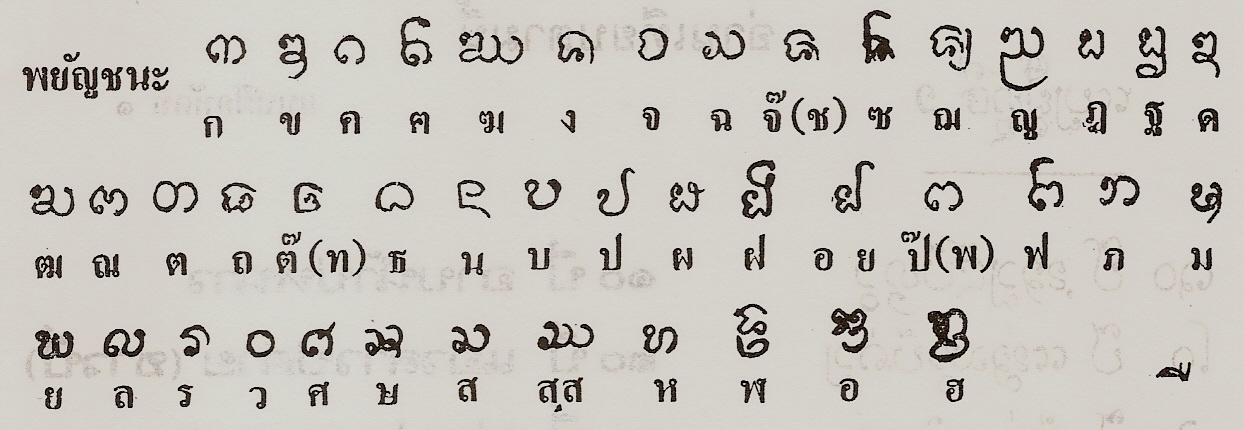 พยัญชนะ ᨠ ᨡ ᨣ ᨤ ᨥ ᨦ ᨧ ᨨ ᨩ ᨪ ᨫ ᨬ ᨭ ᨮ ᨯ
ก ข ค ฅ ฆ ง จ ฉ จ๊(ช) ซ ฌ ญ ฏ ฐ ด
ᨰ ᨱ ᨲ ᨳ ᨴ ᨵ ᨶ ᨷ ᨸ ᨹ ᨺ ᩀ ᨻ ᨼ ᨽ ᨾ
ฒ ณ ต ถ ต๊(ท) ธ น บ ป ผ ฝ อย ป๊(พ) ฟ ภ ม
ᨿ ᩃ ᩁ ᩅ ᩆ ᩇ ᩈ ᩔ ᩉ ᩊ ᩋ ᩌ
ย ล ร ว ศ ษ ส สฺส ห ฬ อ ฮ